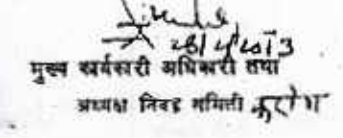 28/4/2013
मुख्य कार्यकारी अधिकारी तथा
अध्यक्ष निवड समिती